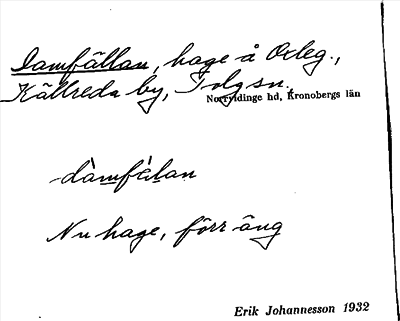 Damfällan, hage å Oxleg.,
Källreda by, Tolg sn.,
Norrvidinge hd, Kronobergs län
-dàmfä̀lan
Nu hage, förr äng
Erik Johannesson 1932